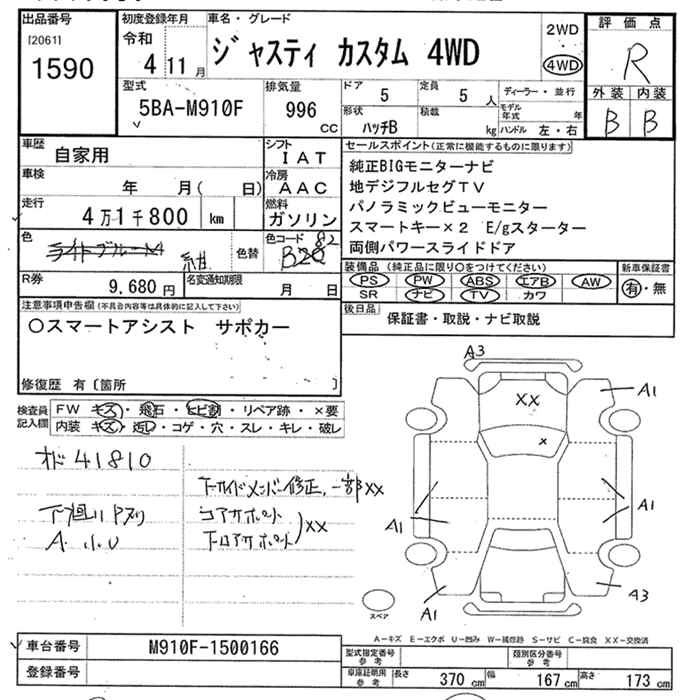 出品番号
[2061]
1590
初度登録年月
令和
4 11月
車名・グレード
ジャスティ カスタム 4WD
2WD
4WD
評価点
R
外装 内装
B B
型式
5BA-M910F
排気量
996
cc
ドア
5
定員
5 人
形状
ハッチB
積載
kg
ディーラー・並行
モデル年式 年
ハンドル 左・右
車歴
自家用
シフト
IAT
車検
年 月( 日)
冷房
AAC
走行
4万1千800 km
燃料
ガソリン
色
ライトブルーM
紺
色替
色コード 82
B28
R券
9.680 円
名変通知期限
月 日
セールスポイント(正常に機能するものに限ります)
純正BIGモニターナビ
地デジフルセグTV
パノラミックビューモニター
スマートキー×2 E/gスターター
両側パワースライドドア
装備品 (純正品に限り○をつけてください)
PS PW ABS エアB AW
SR ナビ TV カワ
新車保証書
有・無
後日品
保証書・取説・ナビ取説
注意事項申告欄(不具合内容等は具体的に記入して下さい)
○スマートアシスト サポカー
修復歴 有〔箇所 〕
検査員記入欄
FW キズ・飛石・ヒビ割・リペア跡・×要
内装 キズ・汚レ・コゲ・穴・スレ・キレ・破レ
オド 41810
下廻りサビ
A.小U
コアサポート
下ロアサポート
XX
A3
A1
XX
×
A1
A1
A1
A3
スペア
A-キズ E-エクボ U-凹み W-補修跡 S-サビ C-腐食 XX-交換済
車台番号
M910F-1500166
登録番号
型式指定番号
参考
類別区分番号
参考
車庫証明用
参考
長さ 370 cm 幅 167 cm 高さ 173 cm